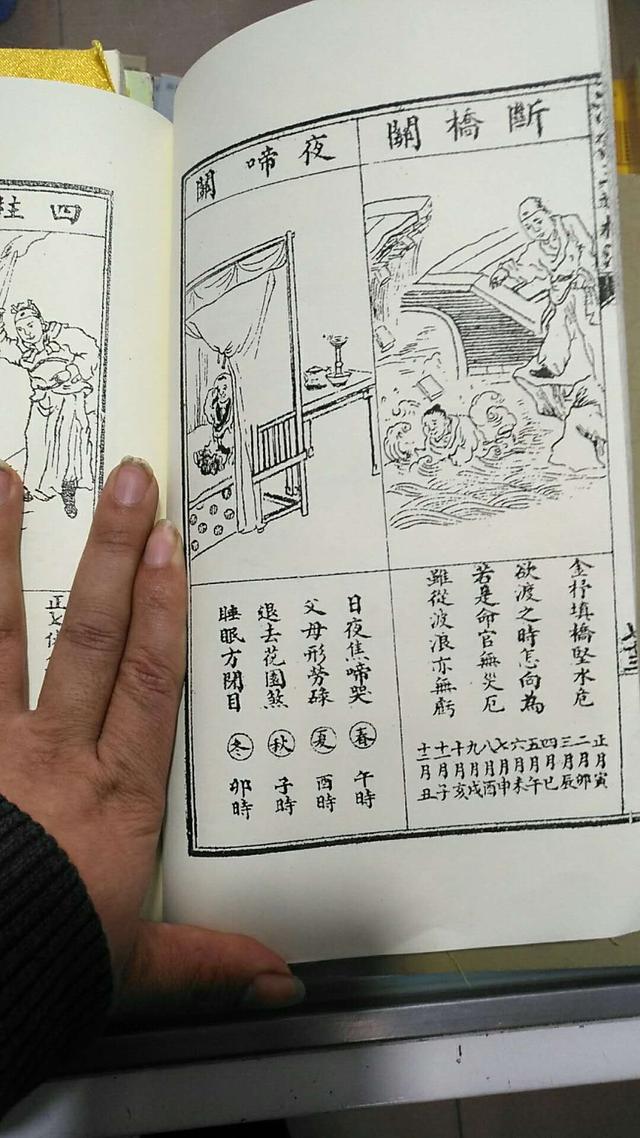 斷橋關
金杼填橋堅水危
欲渡之時怎向為
若是命官無災厄
雖從波浪亦無虧
正月寅
二月卯
三月辰
四月巳
五月午
六月未
七月申
八月酉
九月戌
十月亥
十一月子
十二月丑
夜啼關
日夜焦啼哭
父母形勞碌
退去花園煞
睡眠方閉目
春 午時
夏 酉時
秋 子時
冬 卯時
四柱
正七